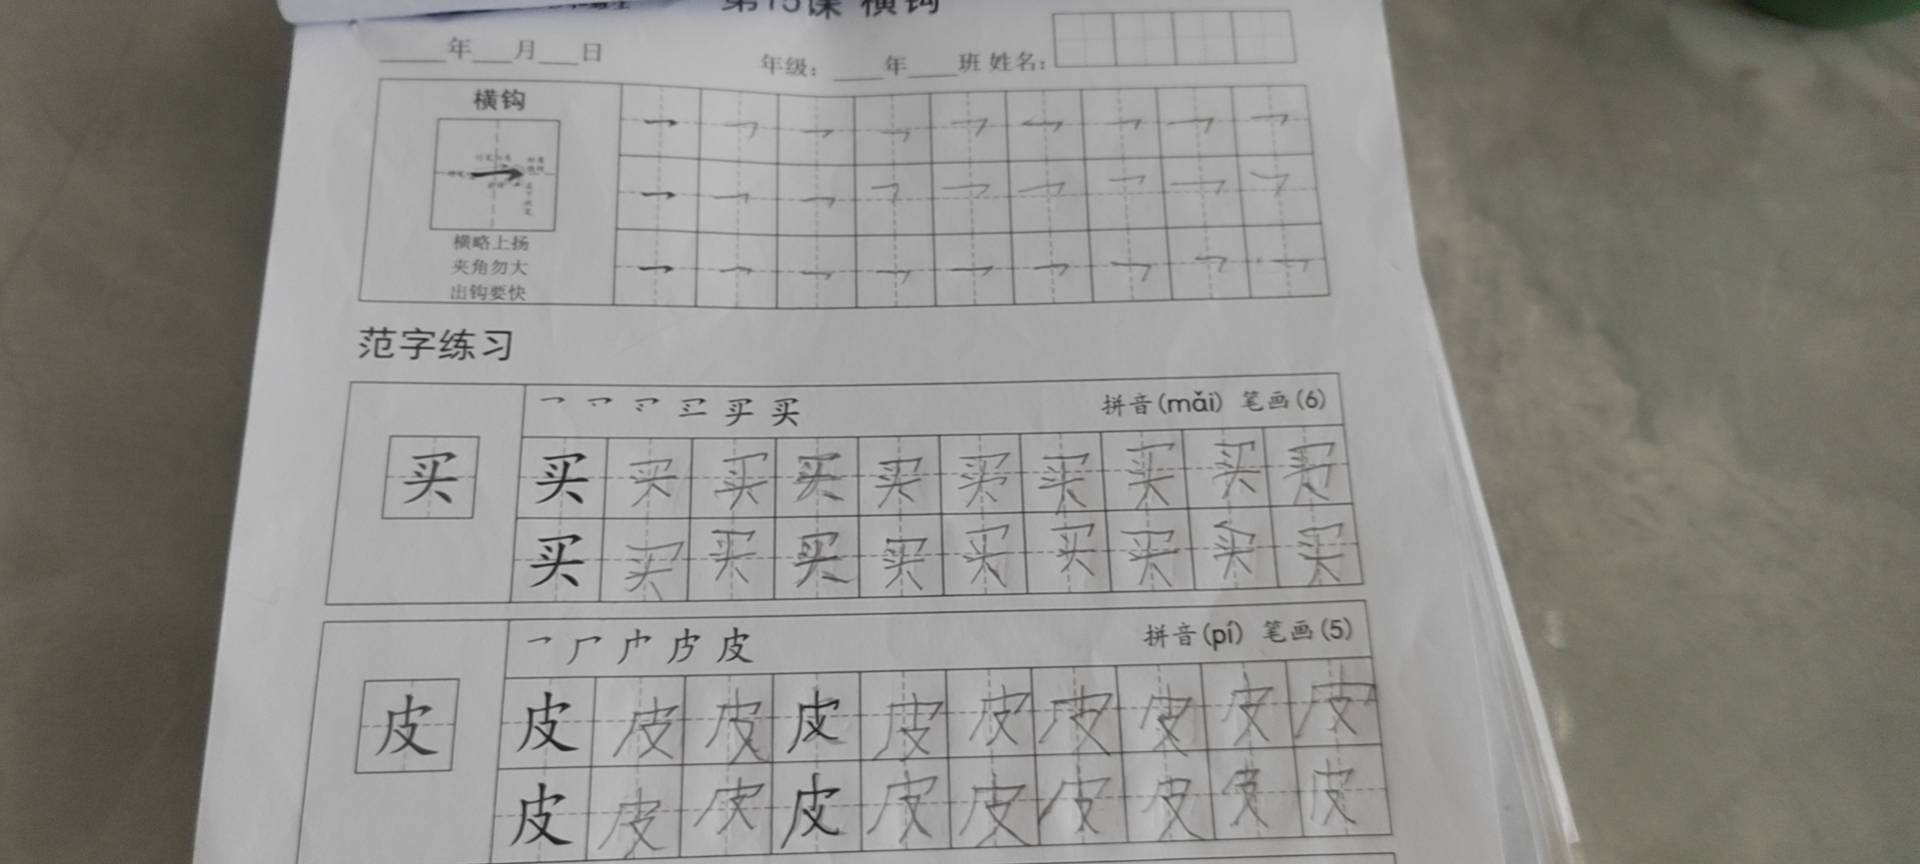 第15课 横钩
年 月 日 年级： 年 班 姓名：
横钩
横略上扬
夹角勿大
出钩要快
范字练习
拼音(mǎi) 笔画(6)
买 买 买 买 买 买 买 买 买 买 买
买 买 买 买 买 买 买 买 买 买
拼音(pí) 笔画(5)
皮 皮 皮 皮 皮 皮 皮 皮 皮 皮 皮
皮 皮 皮 皮 皮 皮 皮 皮 皮 皮